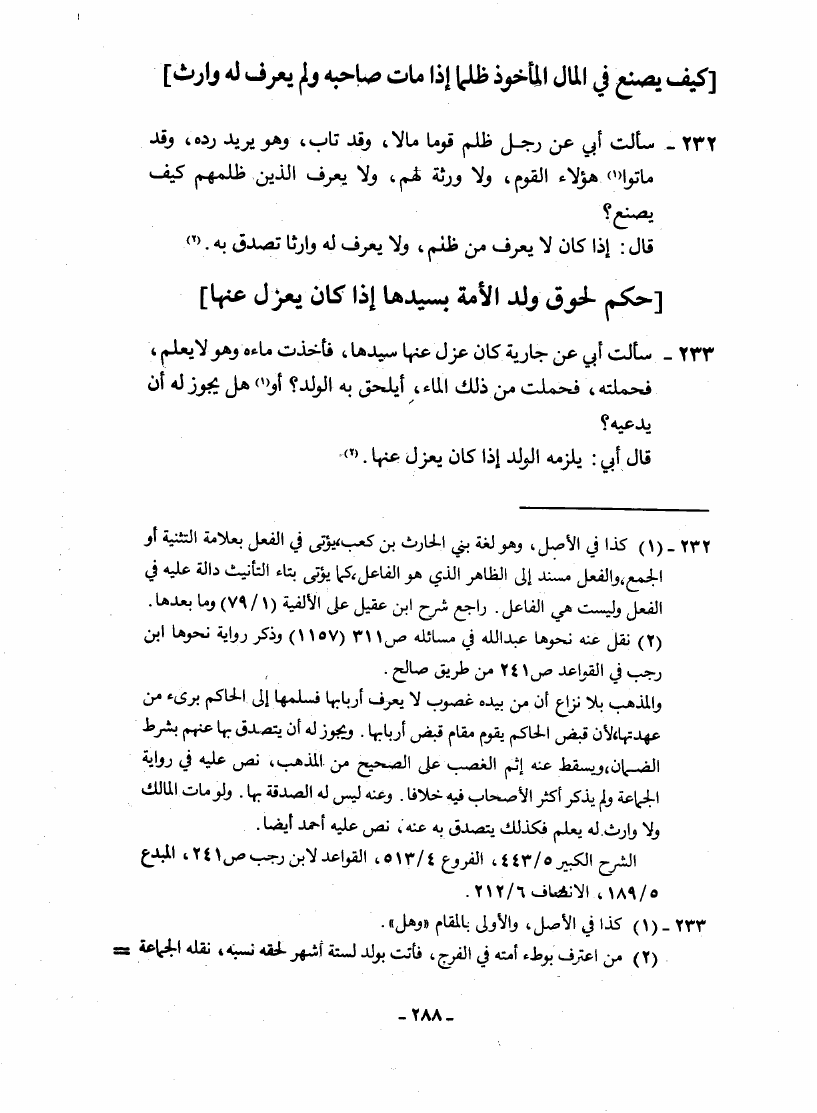 [كيف يصنع في المال المأخوذ ظلما إذا مات صاحبه ولم يعرف له وارث]
٢٣٢ - سألت أبي عن رجل ظلم قوما مالا، وقد تاب، وهو يريد رده، وقد
ماتوا(١) هؤلاء القوم، ولا ورثة لهم، ولا يعرف الذين ظلمهم كيف
يصنع؟
قال: إذا كان لا يعرف من ظلم، ولا يعرف له وارثا تصدق به.(٢)
[حكم لحوق ولد الأمة بسيدها إذا كان يعزل عنها]
٢٣٣ - سألت أبي عن جارية كان عزل عنها سيدها، فأخذت ماءه وهو لايعلم،
فحملته، فحملت من ذلك الماء، أيلحق به الولد؟ أو(١) هل يجوز له أن
يدعيه؟
قال أبي: يلزمه الولد إذا كان يعزل عنها.(٢)
٢٣٢ - (١) كذا في الأصل، وهو لغة بني الحارث بن كعب،يؤتى في الفعل بعلامة التثنية أو
الجمع،والفعل مسند إلى الظاهر الذي هو الفاعل،كما يؤتى بتاء التأنيث دالة عليه في
الفعل وليست هي الفاعل. راجع شرح ابن عقيل على الألفية (٧٩/١) وما بعدها.
(٢) نقل عنه نحوها عبدالله في مسائله ص٣١١ (١١٥٧) وذكر رواية نحوها ابن
رجب في القواعد ص٢٤١ من طريق صالح.
والمذهب بلا نزاع أن من بيده غصوب لا يعرف أربابها فسلمها إلى الحاكم برىء من
عهدتها،لأن قبض الحاكم يقوم مقام قبض أربابها. ويجوز له أن يتصدق بها عنهم بشرط
الضمان،ويسقط عنه إثم الغصب على الصحيح من المذهب، نص عليه في رواية
الجماعة ولم يذكر أكثر الأصحاب فيه خلافا. وعنه ليس له الصدقة بها. ولو مات المالك
ولا وارث له يعلم فكذلك يتصدق به عنه، نص عليه أحمد أيضا.
الشرح الكبير ٤٤٣/٥، الفروع ٥١٣/٤، القواعد لابن رجب ص٢٤١، المبدع
١٨٩/٥، الانصاف ٢١٢/٦.
٢٣٣ - (١) كذا في الأصل، والأولى بالمقام «وهل».
(٢) من اعترف بوطء أمته في الفرج، فأتت بولد لستة أشهر لحقه نسبه، نقله الجماعة =
- ٢٨٨ -